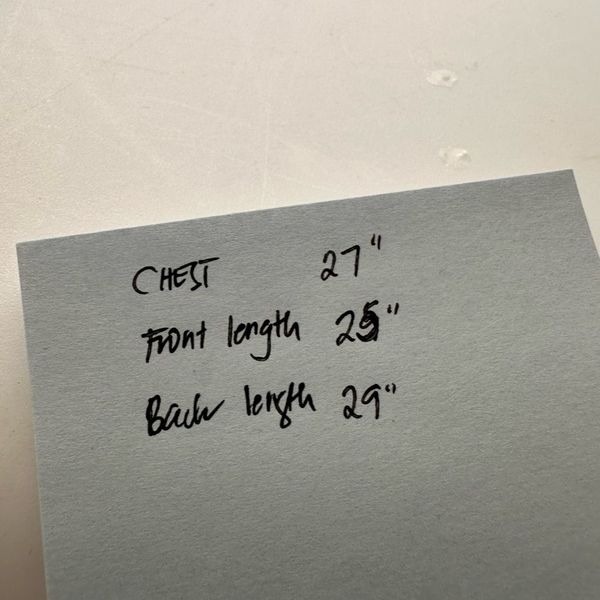 CHEST 27"
Front length 25"
Back length 29"